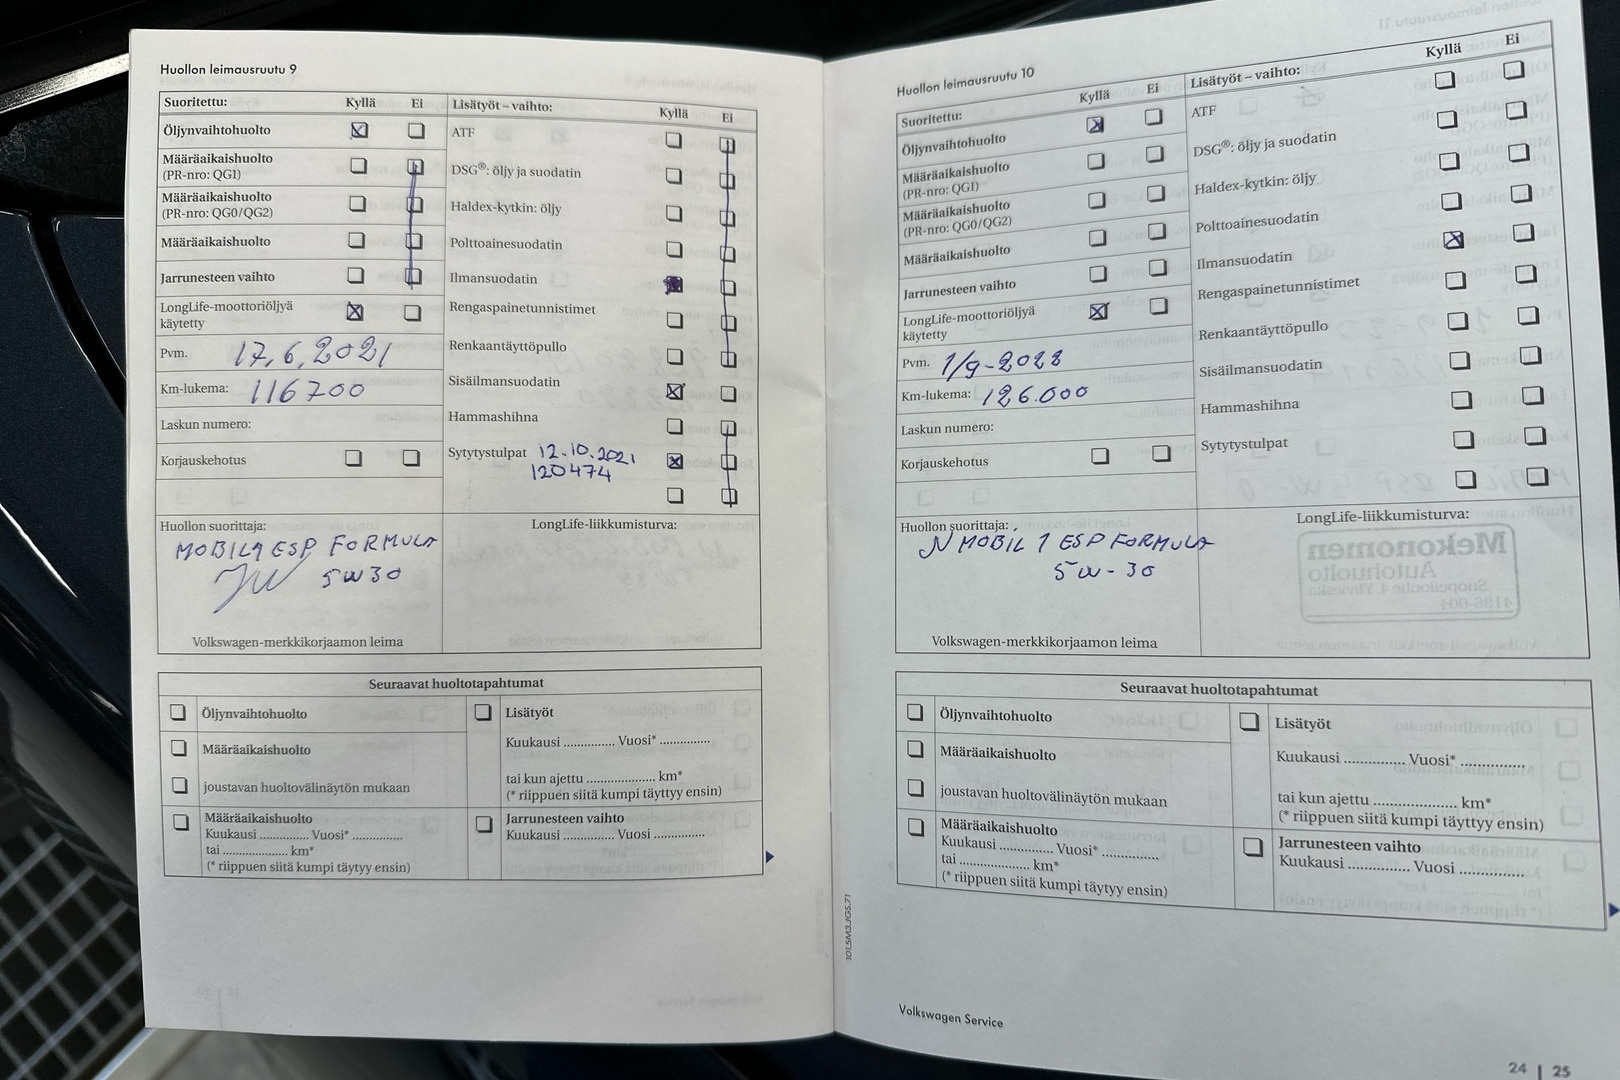 Huollon leimausruutu 9
Suoritettu: Kyllä Ei
Öljynvaihtohuolto
Määräaikaishuolto
(PR-nro: QG1)
Määräaikaishuolto
(PR-nro: QG0/QG2)
Määräaikaishuolto
Jarrunesteen vaihto
LongLife-moottoriöljyä
käytetty
Pvm. 17.6.2021
Km-lukema: 116700
Laskun numero:
Korjauskehotus
Lisätyöt – vaihto: Kyllä Ei
ATF
DSG®: öljy ja suodatin
Haldex-kytkin: öljy
Polttoainesuodatin
Ilmansuodatin
Rengaspainetunnistimet
Renkaantäyttöpullo
Sisäilmansuodatin
Hammashihna
Sytytystulpat 12.10.2021
120474
Huollon suorittaja:
MOBIL1 ESP FORMULA
5W30
Volkswagen-merkkikorjaamon leima
LongLife-liikkumisturva:
Seuraavat huoltotapahtumat
Öljynvaihtohuolto
Määräaikaishuolto
joustavan huoltovälinäytön mukaan
Määräaikaishuolto
Kuukausi .............. Vuosi* ..............
tai .................... km*
(* riippuen siitä kumpi täytyy ensin)
Lisätyöt
Kuukausi .............. Vuosi* ..............
tai kun ajettu .................... km*
(* riippuen siitä kumpi täyttyy ensin)
Jarrunesteen vaihto
Kuukausi .............. Vuosi ..............
Huollon leimausruutu 10
Suoritettu: Kyllä Ei
Öljynvaihtohuolto
Määräaikaishuolto
(PR-nro: QG1)
Määräaikaishuolto
(PR-nro: QG0/QG2)
Määräaikaishuolto
Jarrunesteen vaihto
LongLife-moottoriöljyä
käytetty
Pvm. 1/9-2022
Km-lukema: 126.000
Laskun numero:
Korjauskehotus
Lisätyöt – vaihto: Kyllä Ei
ATF
DSG®: öljy ja suodatin
Haldex-kytkin: öljy
Polttoainesuodatin
Ilmansuodatin
Rengaspainetunnistimet
Renkaantäyttöpullo
Sisäilmansuodatin
Hammashihna
Sytytystulpat
Huollon suorittaja:
MOBIL 1 ESP FORMULA
5W-30
Volkswagen-merkkikorjaamon leima
LongLife-liikkumisturva:
Mekonomen
Autohuolto
Seuraavat huoltotapahtumat
Öljynvaihtohuolto
Määräaikaishuolto
joustavan huoltovälinäytön mukaan
Määräaikaishuolto
Kuukausi .............. Vuosi* ..............
tai .................... km*
(* riippuen siitä kumpi täytyy ensin)
Lisätyöt
Kuukausi .............. Vuosi* ..............
tai kun ajettu .................... km*
(* riippuen siitä kumpi täyttyy ensin)
Jarrunesteen vaihto
Kuukausi .............. Vuosi ..............
Volkswagen Service
24 | 25